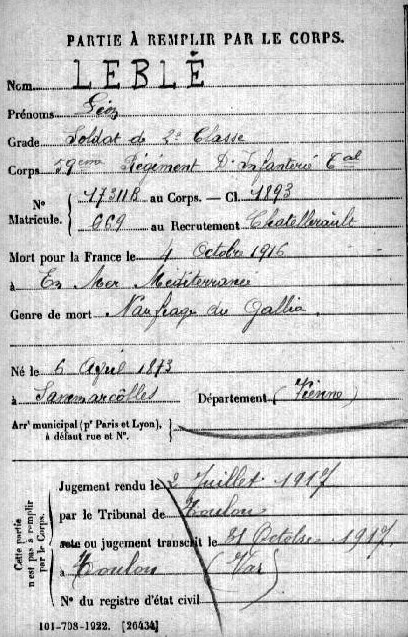 PARTIE À REMPLIR PAR LE CORPS.
Nom LEBLÉ
Prénoms Léon
Grade Soldat de 2e Classe
Corps 59eme Régiment D'Infanterie Cal
N° Matricule. 17311B au Corps. — Cl. 1893
669 au Recrutement Chatellerault
Mort pour la France le 4 Octobre 1916
à En Mer Méditerranée
Genre de mort Naufrage du Gallia
Né le 6 Avril 1873
à Sammarcolles Département (Vienne)
Arrt municipal (pr Paris et Lyon), à défaut rue et N°.
Cette partie n'est pas à remplir par le Corps.
Jugement rendu le 2 Juillet 1917
par le Tribunal de Toulon
acte ou jugement transcrit le 31 Octobre 1917.
à Toulon (Var)
N° du registre d'état civil
101-708-1922. [26434]